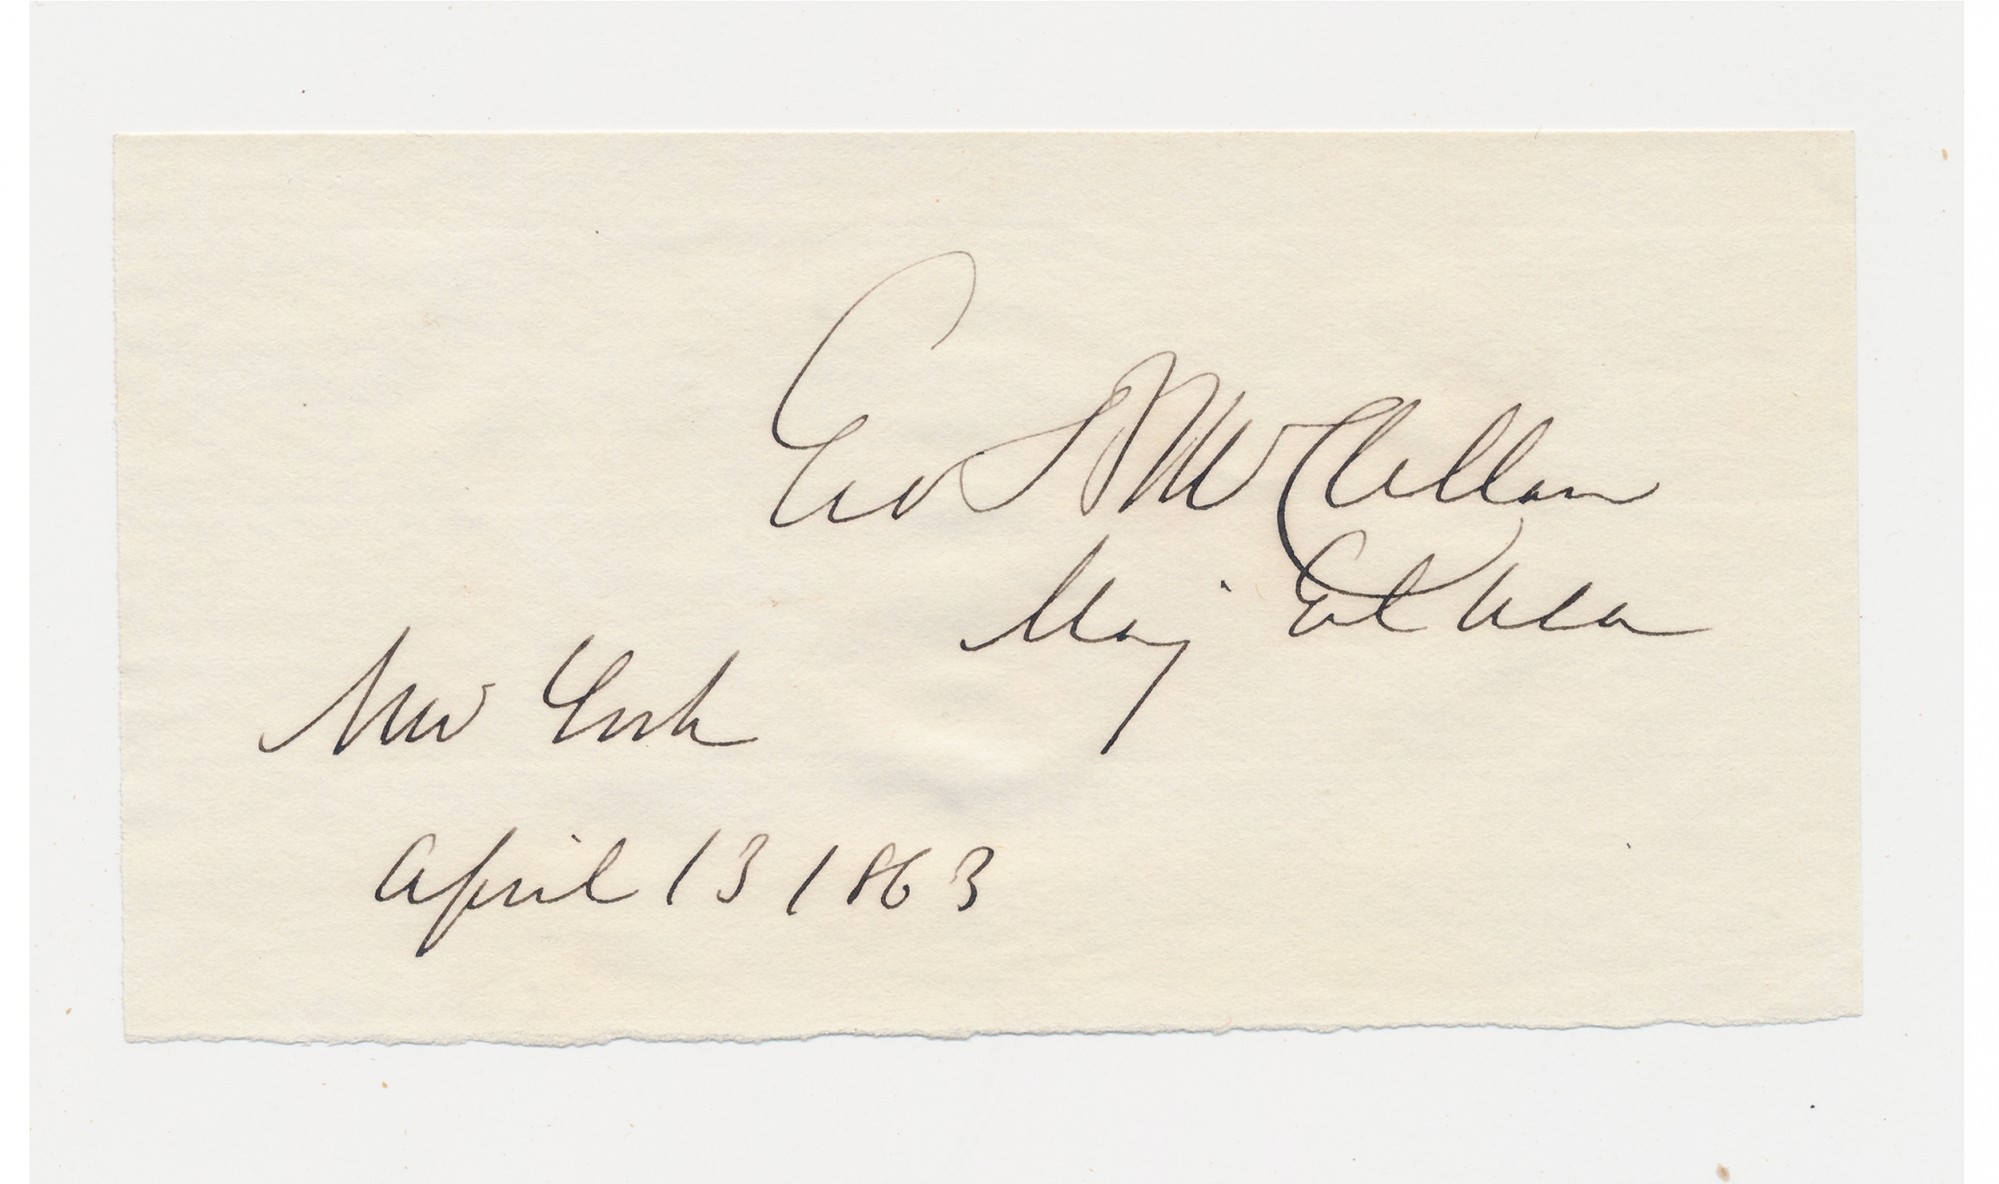 Geo B McClellan
Maj Genl USA
New York
April 13 1863